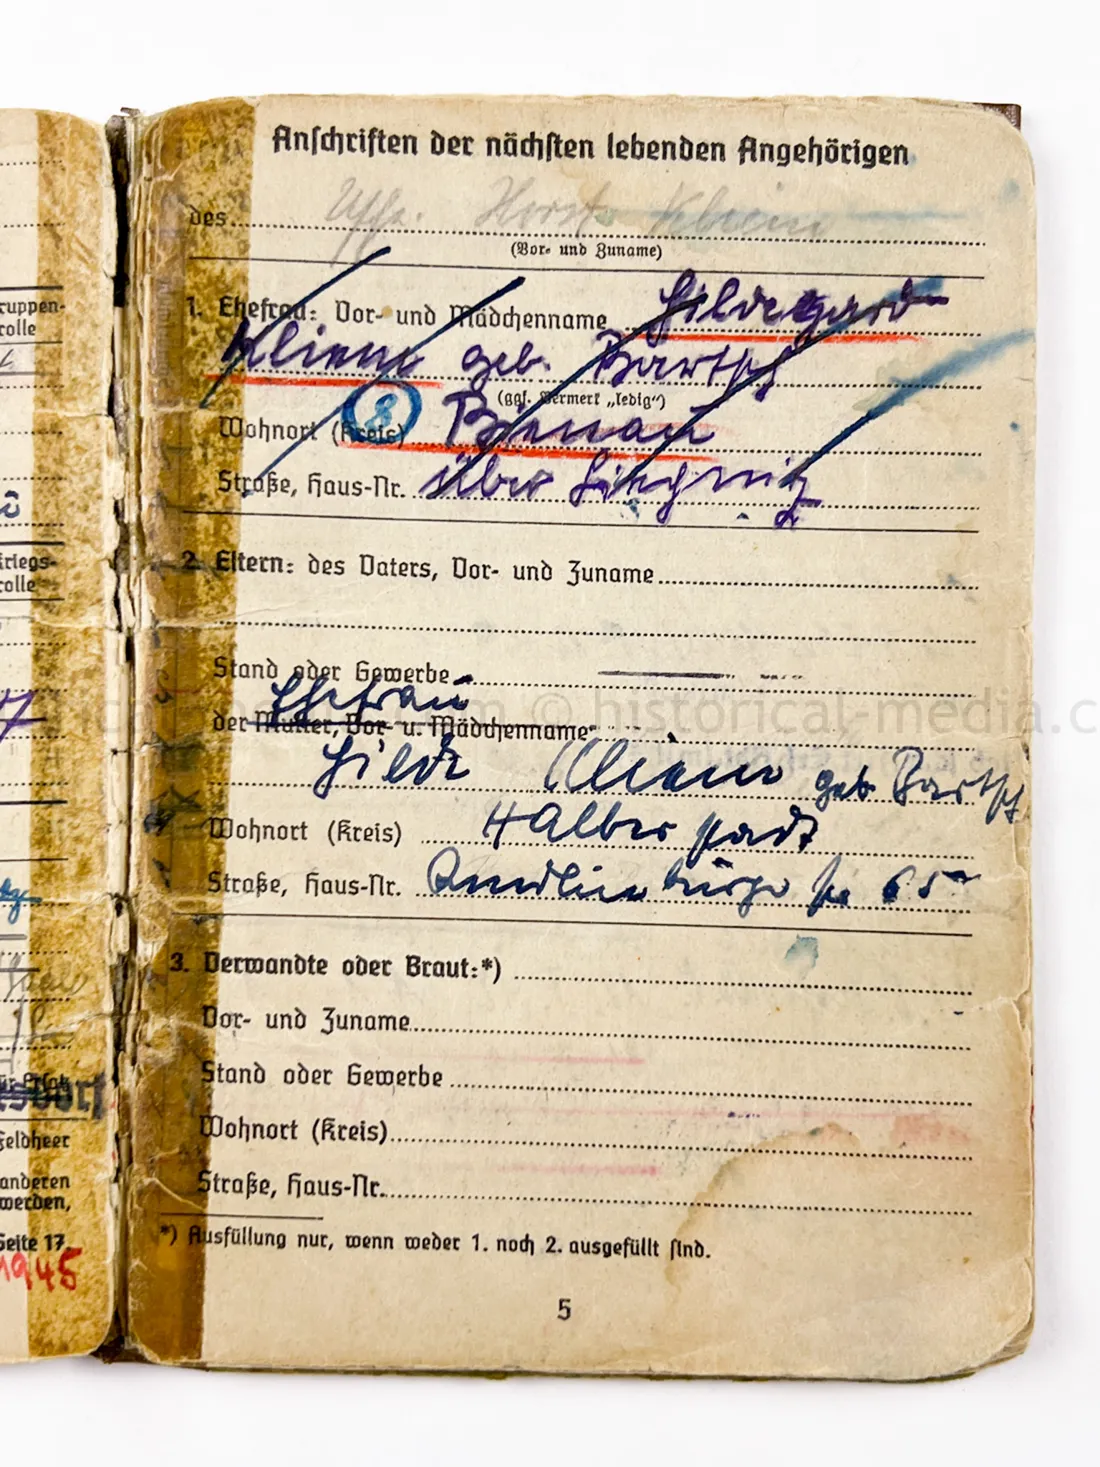 ruppen-
rolle
Kriegs-
rolle
Feldheer
anderen
werden,
Seite 17.
1945
Anschriften der nächsten lebenden Angehörigen
des Uffz. Horst
(Vor- und Zuname)
1. Ehefrau: Vor- und Mädchenname Hildegard
geb. Bartsch
(ggf. Vermerk „ledig“)
Wohnort (Kreis) 8 Bienau
Straße, Haus-Nr. über Liegnitz
2. Eltern: des Vaters, Vor- und Zuname
Stand oder Gewerbe
Ehefrau
der Mutter, Vor- u. Mädchenname
© historical-media.c
Hilde geb. Bartsch
Wohnort (Kreis) Halberstadt
Straße, Haus-Nr. Quedlinburger Str 65
3. Verwandte oder Braut:*)
Vor- und Zuname
Stand oder Gewerbe
Wohnort (Kreis)
Straße, Haus-Nr.
*) Ausfüllung nur, wenn weder 1. noch 2. ausgefüllt sind.
5